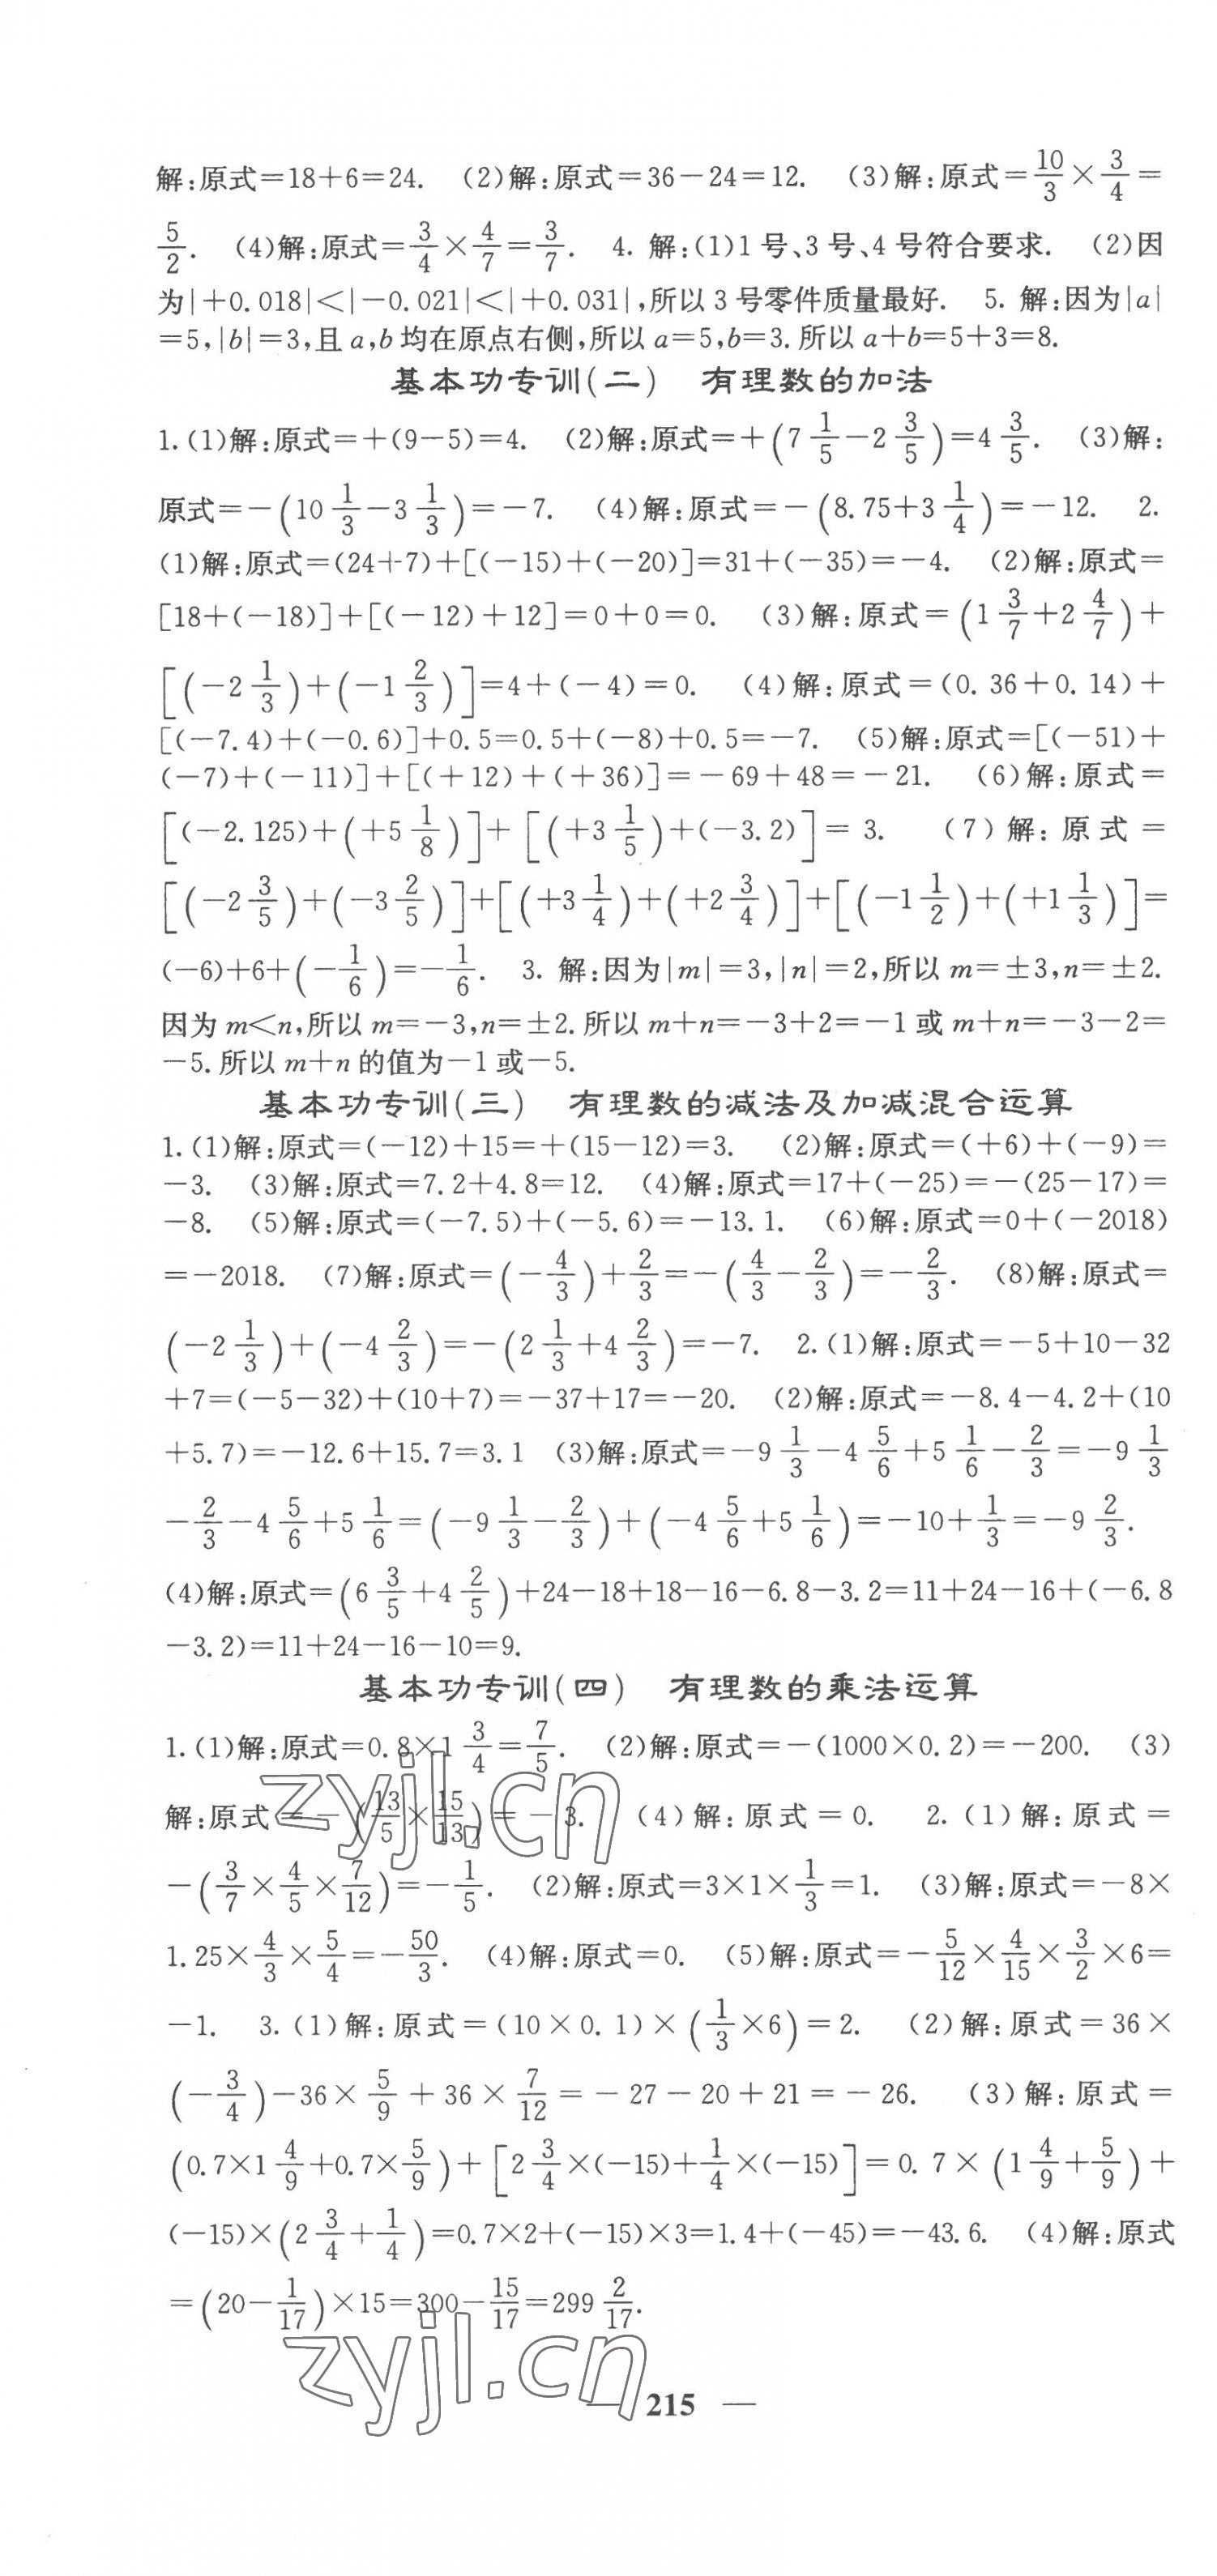 解:原式=18+6=24. (2)解:原式=36-24=12. (3)解:原式=10/3×3/4=
5/2. (4)解:原式=3/4×4/7=3/7. 4. 解:(1)1号、3号、4号符合要求. (2)因
为|+0.018|<|-0.021|<|+0.031|,所以3号零件质量最好. 5. 解:因为|a|
=5,|b|=3,且a,b均在原点右侧,所以a=5,b=3.所以a+b=5+3=8.
基本功专训(二) 有理数的加法
1.(1)解:原式=+(9-5)=4. (2)解:原式=+(7 1/5-2 3/5)=4 3/5. (3)解:
原式=-(10 1/3-3 1/3)=-7. (4)解:原式=-(8.75+3 1/4)=-12. 2.
(1)解:原式=(24+7)+[(-15)+(-20)]=31+(-35)=-4. (2)解:原式=
[18+(-18)]+[(-12)+12]=0+0=0. (3)解:原式=(1 3/7+2 4/7)+
[(-2 1/3)+(-1 2/3)]=4+(-4)=0. (4)解:原式=(0.36+0.14)+
[(-7.4)+(-0.6)]+0.5=0.5+(-8)+0.5=-7. (5)解:原式=[(-51)+
(-7)+(-11)]+[(+12)+(+36)]=-69+48=-21. (6)解:原式=
[(-2.125)+(+5 1/8)]+[(+3 1/5)+(-3.2)]=3. (7)解:原式=
[(-2 3/5)+(-3 2/5)]+[(+3 1/4)+(+2 3/4)]+[(-1 1/2)+(+1 1/3)]=
(-6)+6+(-1/6)=-1/6. 3. 解:因为|m|=3,|n|=2,所以m=±3,n=±2.
因为m<n,所以m=-3,n=±2.所以m+n=-3+2=-1或m+n=-3-2=
-5.所以m+n的值为-1或-5.
基本功专训(三) 有理数的减法及加减混合运算
1.(1)解:原式=(-12)+15=+(15-12)=3. (2)解:原式=(+6)+(-9)=
-3. (3)解:原式=7.2+4.8=12. (4)解:原式=17+(-25)=-(25-17)=
-8. (5)解:原式=(-7.5)+(-5.6)=-13.1. (6)解:原式=0+(-2018)
=-2018. (7)解:原式=(-4/3)+2/3=-(4/3-2/3)=-2/3. (8)解:原式=
(-2 1/3)+(-4 2/3)=-(2 1/3+4 2/3)=-7. 2.(1)解:原式=-5+10-32
+7=(-5-32)+(10+7)=-37+17=-20. (2)解:原式=-8.4-4.2+(10
+5.7)=-12.6+15.7=3.1 (3)解:原式=-9 1/3-4 5/6+5 1/6-2/3=-9 1/3
-2/3-4 5/6+5 1/6=(-9 1/3-2/3)+(-4 5/6+5 1/6)=-10+1/3=-9 2/3.
(4)解:原式=(6 3/5+4 2/5)+24-18+18-16-6.8-3.2=11+24-16+(-6.8
-3.2)=11+24-16-10=9.
基本功专训(四) 有理数的乘法运算
1.(1)解:原式=0.8×1 3/4=7/5. (2)解:原式=-(1000×0.2)=-200. (3)
解:原式=-(13/5×15/13)=-3. (4)解:原式=0. 2.(1)解:原式=
-(3/7×4/5×7/12)=-1/5. (2)解:原式=3×1×1/3=1. (3)解:原式=-8×
1.25×4/3×5/4=-50/3. (4)解:原式=0. (5)解:原式=-5/12×4/15×3/2×6=
-1. 3.(1)解:原式=(10×0.1)×(1/3×6)=2. (2)解:原式=36×
(-3/4)-36×5/9+36×7/12=-27-20+21=-26. (3)解:原式=
(0.7×1 4/9+0.7×5/9)+[2 3/4×(-15)+1/4×(-15)]=0.7×(1 4/9+5/9)+
(-15)×(2 3/4+1/4)=0.7×2+(-15)×3=1.4+(-45)=-43.6. (4)解:原式
=(20-1/17)×15=300-15/17=299 2/17.
zyjl.cn
zyjl.cn
215 —